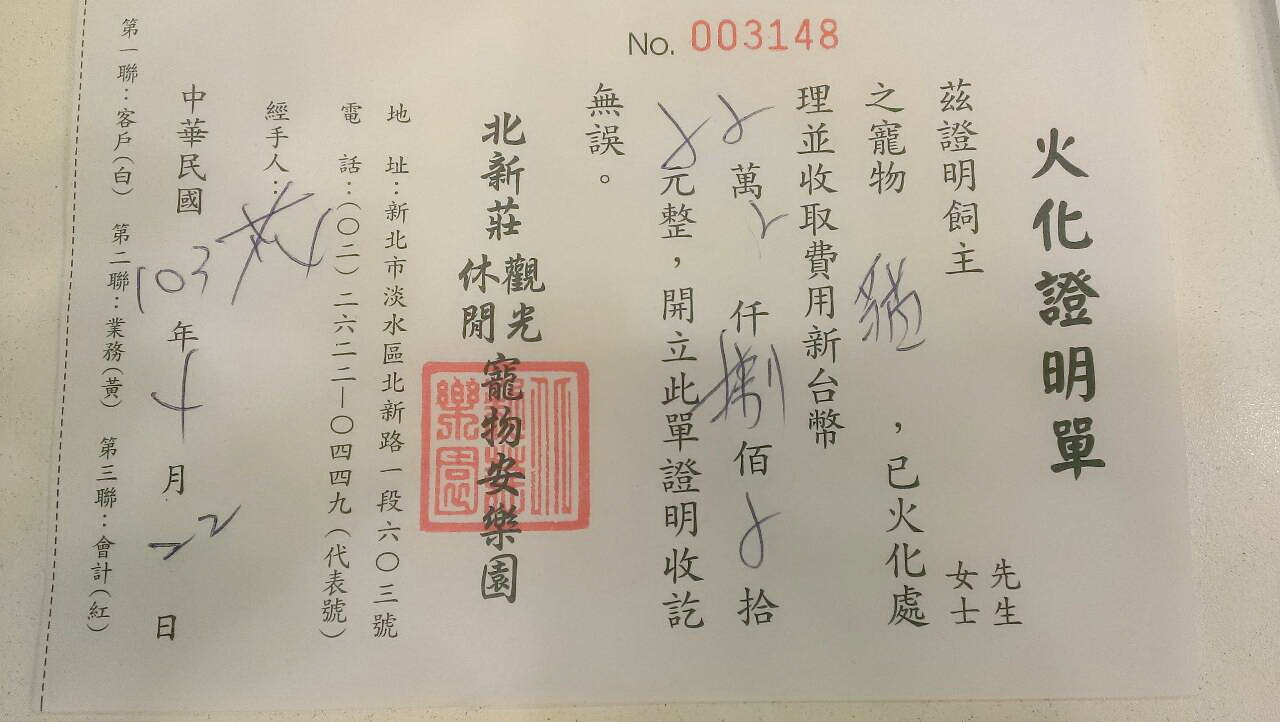 No. 003148
火化證明單
茲證明飼主 先生 女士
之寵物 貓 ,已火化處
理並收取費用新台幣
萬 仟 捌 佰 拾
元整,開立此單證明收訖
無誤。
北新莊觀光休閒寵物安樂園
地 址:新北市淡水區北新路一段六〇三號
電 話:(〇二)二六二二—〇四四九(代表號)
經手人:
中華民國 103 年 十 月 二 日
第一聯:客戶(白) 第二聯:業務(黃) 第三聯:會計(紅)